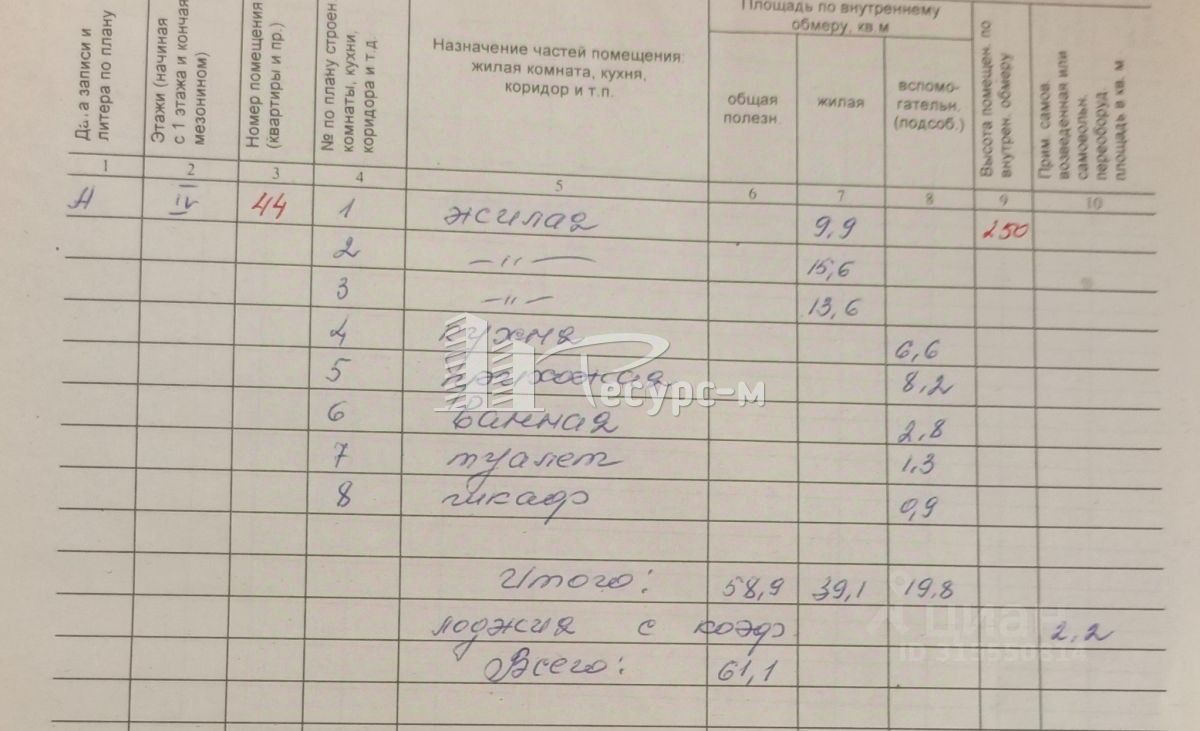 Дата записи и литера по плану
Этажи (начиная с 1 этажа и кончая мезонином)
Номер помещения (квартиры и пр.)
№ по плану строен. комнаты, кухни, коридора и т.д.
Назначение частей помещения:
жилая комната, кухня,
коридор и т.п.
Площадь по внутреннему
обмеру, кв.м
общая
полезн.
жилая
вспомо-
гательн.
(подсоб.)
Высота помещен. по внутрен. обмеру
Прим. самов. возведенная или самовольн. переоборуд. площадь в кв. м
1 2 3 4 5 6 7 8 9 10
А IV 44 1 жилая 9,9 250
2 —〃— 15,6
3 —〃— 13,6
4 кухня 6,6
5 прихожая 8,2
6 Ванная 2,8
7 туалет 1,3
8 шкаф 0,9
Итого: 58,9 39,1 19,8
лоджия с коэф 2,2
Всего: 61,1
Ресурс-м
циан